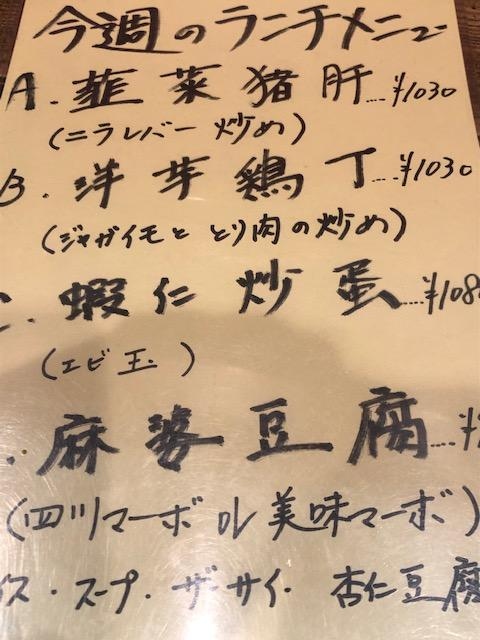 今週のランチメニュー
A. 韮菜猪肝....¥1030
(ニラレバー炒め)
B. 洋芋鶏丁....¥1030
(ジャガイモととり肉の炒め)
C. 蝦仁炒蛋....¥108
(エビ玉)
. 麻婆豆腐....¥
(四川マーボ or 美味マーボ)
イス・スープ・ザーサイ・杏仁豆腐